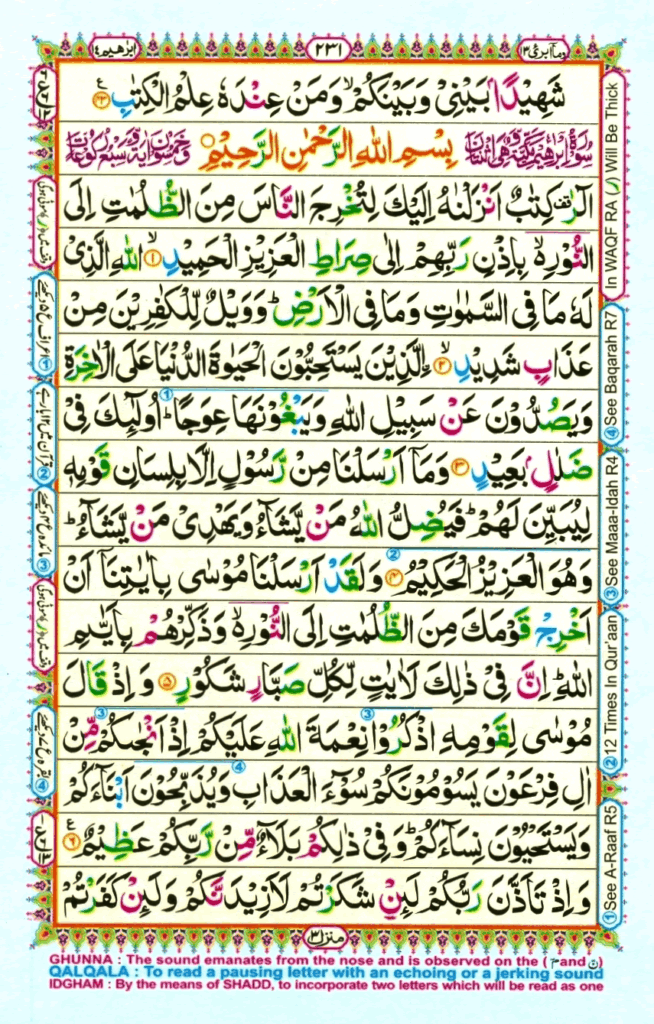 ومآ ابرئ ١٣
٢٣١
ابرٰهيم ١٤
شَهِيْدًۢا بَيْنِيْ وَبَيْنَكُمْ ۙ وَمَنْ عِنْدَهٗ عِلْمُ الْكِتٰبِ ۝٤٣
بِسْمِ اللّٰهِ الرَّحْمٰنِ الرَّحِيْمِ
الٓرٰ ۫ كِتٰبٌ اَنْزَلْنٰهُ اِلَيْكَ لِتُخْرِجَ النَّاسَ مِنَ الظُّلُمٰتِ اِلَى
النُّوْرِ ۙ۬ بِاِذْنِ رَبِّهِمْ اِلٰى صِرَاطِ الْعَزِيْزِ الْحَمِيْدِ ۙ‏۝١ اللّٰهِ الَّذِيْ
لَهٗ مَا فِي السَّمٰوٰتِ وَمَا فِي الْاَرْضِ ؕ وَوَيْلٌ لِّلْكٰفِرِيْنَ مِنْ
عَذَابٍ شَدِيْدِ ۙ‏۝٢ ۟الَّذِيْنَ يَسْتَحِبُّوْنَ الْحَيٰوةَ الدُّنْيَا عَلَى الْاٰخِرَةِ
وَيَصُدُّوْنَ عَنْ سَبِيْلِ اللّٰهِ وَيَبْغُوْنَهَا عِوَجًا ؕ اُولٰٓئِكَ فِيْ
ضَلٰلٍۭ بَعِيْدٍ ۝٣ وَمَاۤ اَرْسَلْنَا مِنْ رَّسُوْلٍ اِلَّا بِلِسَانِ قَوْمِهٖ
لِيُبَيِّنَ لَهُمْ ؕ فَيُضِلُّ اللّٰهُ مَنْ يَّشَآءُ وَيَهْدِيْ مَنْ يَّشَآءُ ؕ
وَهُوَ الْعَزِيْزُ الْحَكِيْمُ ۝٤ وَلَقَدْ اَرْسَلْنَا مُوْسٰى بِاٰيٰتِنَاۤ اَنْ
اَخْرِجْ قَوْمَكَ مِنَ الظُّلُمٰتِ اِلَى النُّوْرِ ۙ۬ وَذَكِّرْهُمْ بِاَيّٰىمِ
اللّٰهِ ؕ اِنَّ فِيْ ذٰلِكَ لَاٰيٰتٍ لِّكُلِّ صَبَّارٍ شَكُوْرٍ ۝٥ وَاِذْ قَالَ
مُوْسٰى لِقَوْمِهِ اذْكُرُوْا نِعْمَةَ اللّٰهِ عَلَيْكُمْ اِذْ اَنْجٰىكُمْ مِّنْ
اٰلِ فِرْعَوْنَ يَسُوْمُوْنَكُمْ سُوْٓءَ الْعَذَابِ وَيُذَبِّحُوْنَ اَبْنَآءَكُمْ
وَيَسْتَحْيُوْنَ نِسَآءَكُمْ ؕ وَفِيْ ذٰلِكُمْ بَلَآءٌ مِّنْ رَّبِّكُمْ عَظِيْمٌ ۝٦
وَاِذْ تَاَذَّنَ رَبُّكُمْ لَئِنْ شَكَرْتُمْ لَاَزِيْدَنَّكُمْ وَلَئِنْ كَفَرْتُمْ
منزل ٣
In WAQF RA (ر) Will Be Thick
④ See Baqarah R7
③ See Maaa-Idah R4
② 12 Times In Qur'aan
① See A-Raaf R5
GHUNNA : The sound emanates from the nose and is observed on the ( م and ن )
QALQALA : To read a pausing letter with an echoing or a jerking sound
IDGHAM : By the means of SHADD, to incorporate two letters which will be read as one